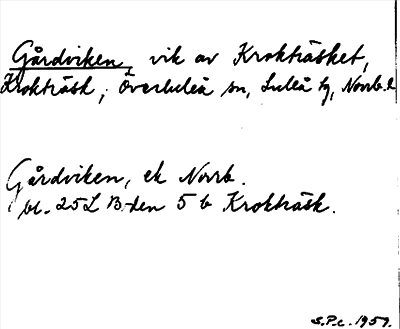 Gårdviken, vik av Krokträsket,
Krokträsk, Överluleå sn, Luleå tg, Norrb. l
Gårdviken, ek Norrb.
bl. 25L B-den 5 b Krokträsk.
S.P.c. 1959.